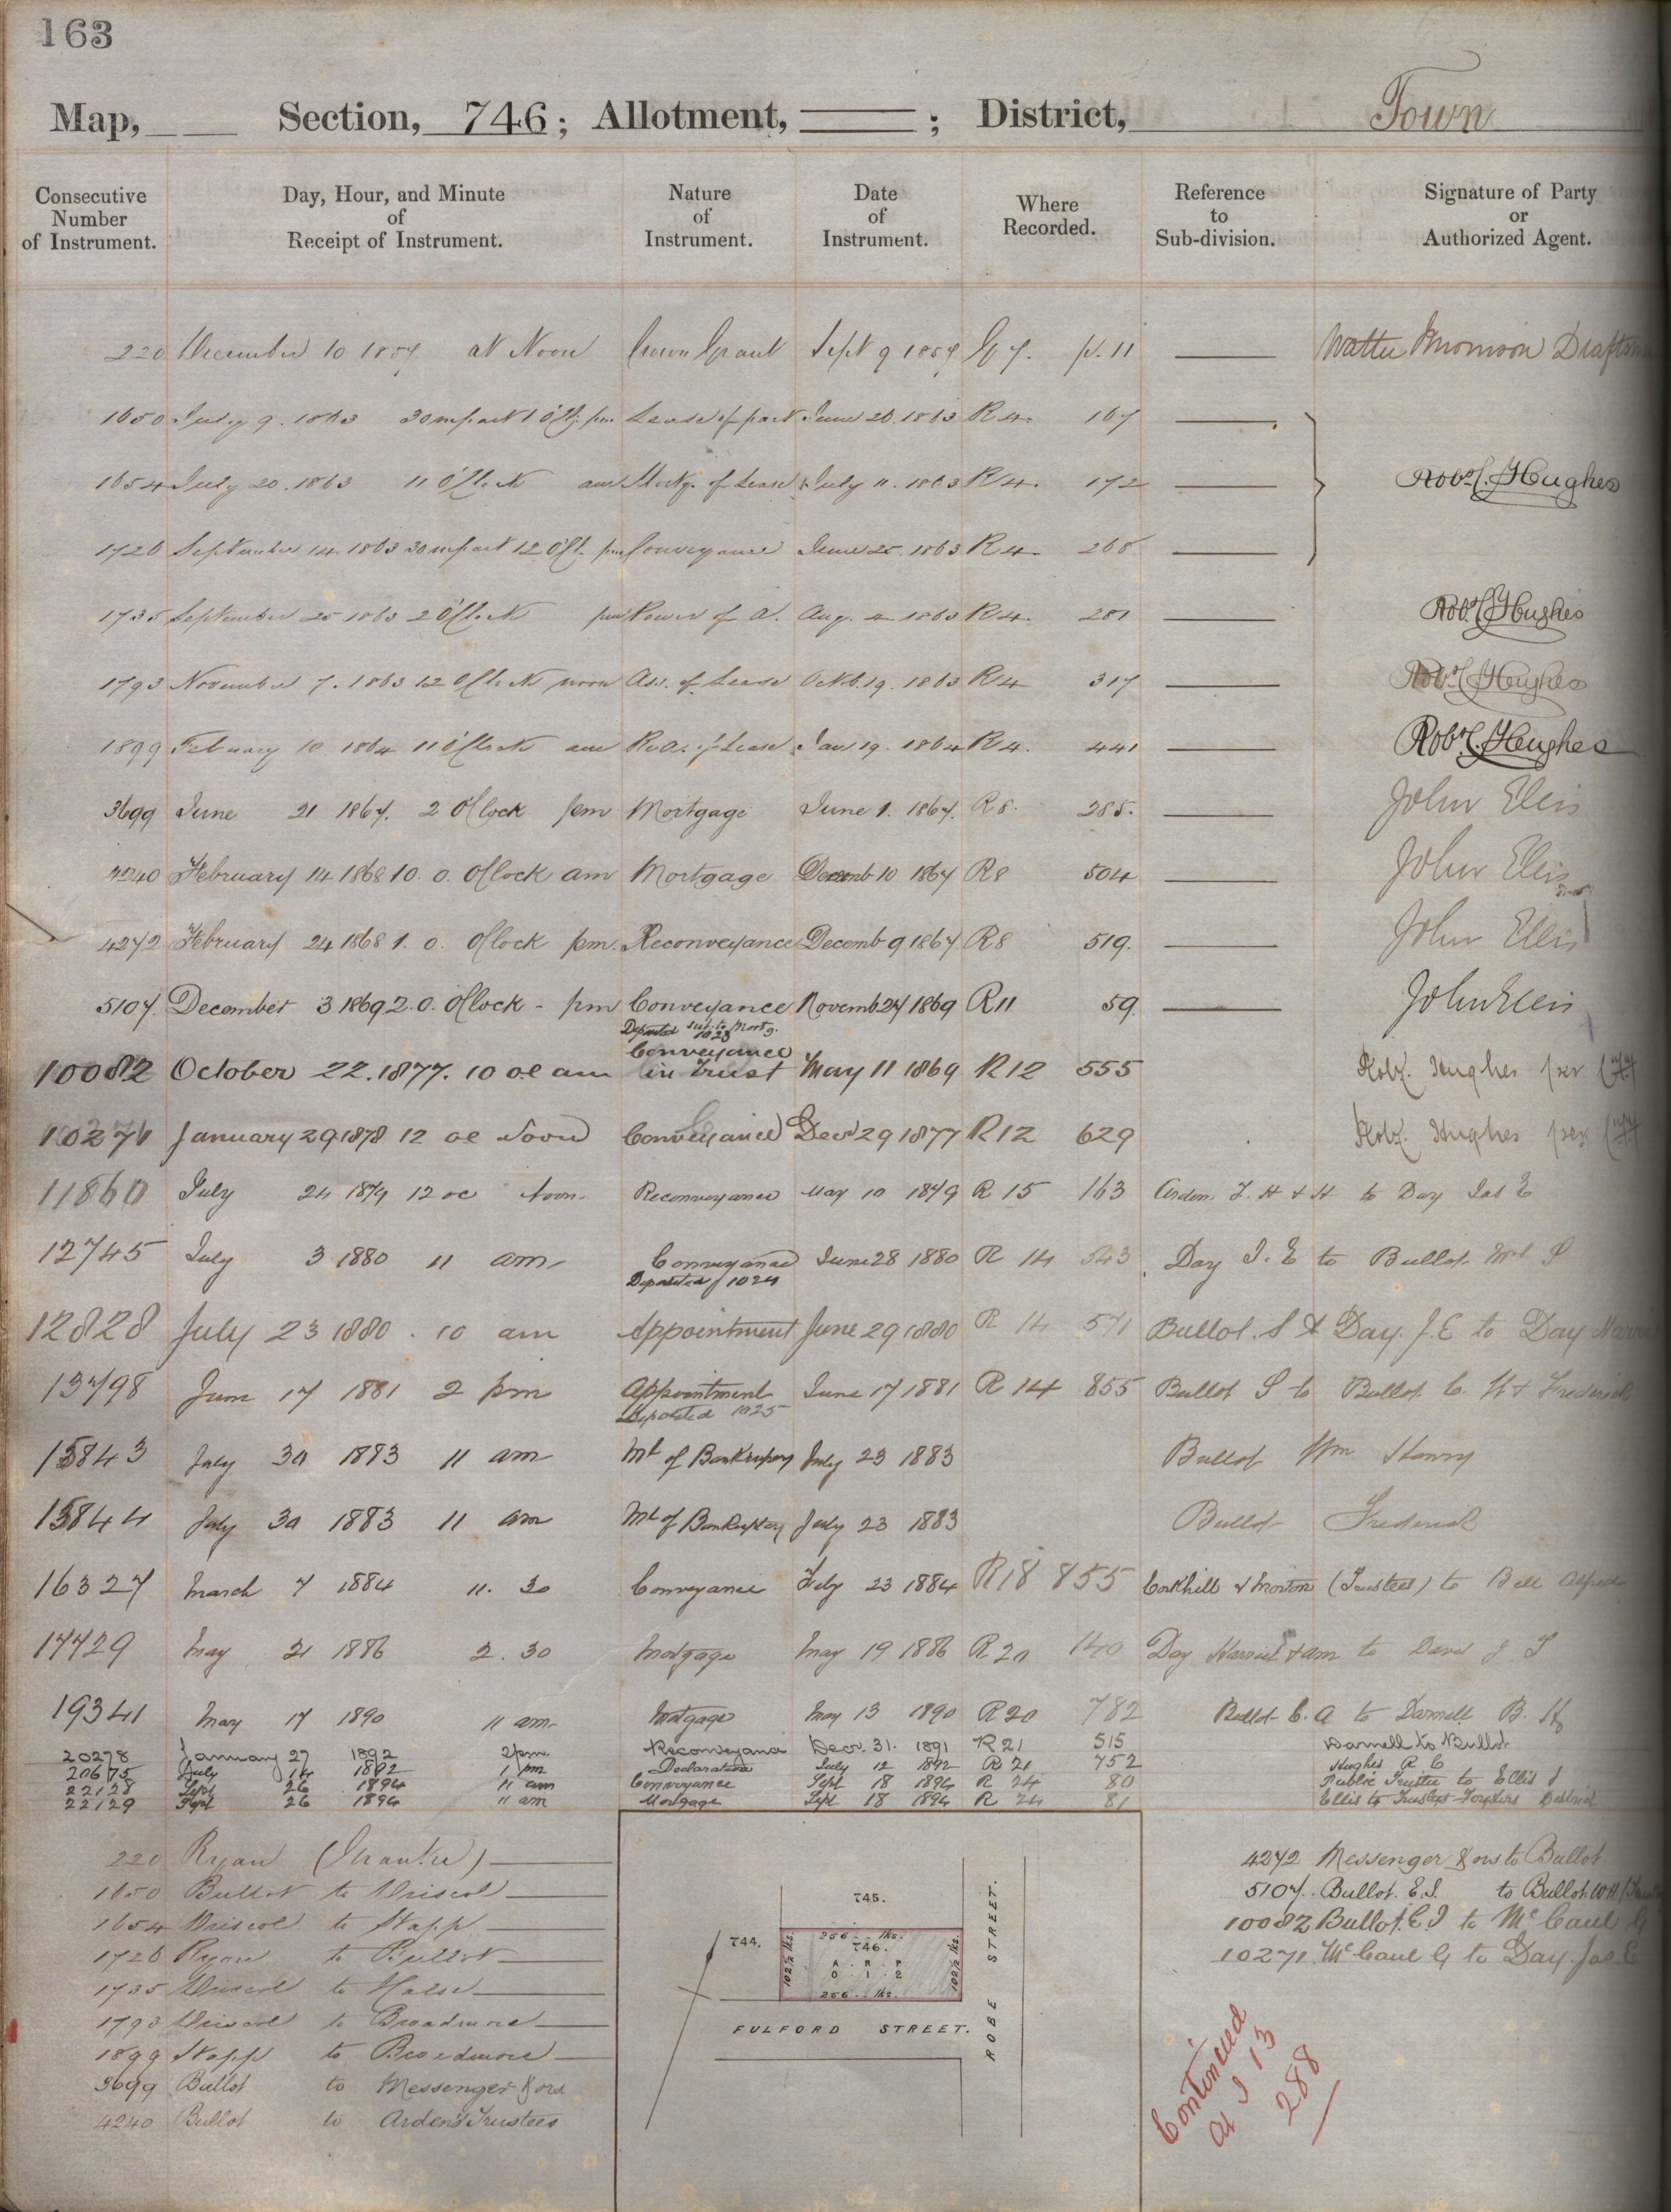 163
Map, Section, 746; Allotment, ; District, Town
Consecutive Number of Instrument. Day, Hour, and Minute of Receipt of Instrument. Nature of Instrument. Date of Instrument. Where Recorded. Reference to Sub-division. Signature of Party or Authorized Agent.
220 December 10 at Noon Crown Grant Sept 9 p. 11
1650 July 9. 1863 Lease of part June 26. 1863 R 4. 167
1654 July 20. 1863 11 O'Clock am Mortg. of Lease July 11. 1863 R 4. 172 Robt. C. Hughes
1726 September 14. 1863 30 m past 12 O'Cl. pm Conveyance June 25. 1863 R 4. 268
1735 September 25 1863 2 O'Clock pm Power of A. Aug. 4 1863 R 4. 281 Robt. C. Hughes
1793 November 7. 1863 12 O'Clock noon Ass. of Lease Octob. 19. 1863 R 4 317 Robt. C. Hughes
1899 February 10 1864 11 O'Clock am Lease Jan 19. 1864 R 4. 441 Robt. C. Hughes
3699 June 21 1867. 2 O'Clock pm Mortgage June 1. 1867. R 8. 285. John Ellis
4240 February 14 1868 10. 0. O'Clock am Mortgage Decemb 10 1867 R8 504 John Ellis
4272 February 24 1868 1. 0. O'Clock pm. Reconveyance Decemb 9 1867 R8 519. John Ellis
5107. December 3 1869 2. 0. O'Clock - pm Conveyance Novemb 24 1869 R11 59. John Ellis
Deposited sub: to Mortg. 1023
10082 October 22. 1877. 10 oc am Conveyance in Trust May 11 1869 R12 555 Robt. Hughes per
10271 January 29 1878 12 oc Noon Conveyance Decr 29 1877 R12 629 Robt. Hughes per
11860 July 24 1879 12 oc Noon Reconveyance May 10 1879 R 15 163 Arden. F. H & H to Day Jas E
12745 July 3 1880 11 am Conveyance June 28 1880 R 14 543 Day J. E to Bullot
Deposited 1024
12828 July 23 1880. 10 am Appointment June 29 1880 R 14 571 Bullot. S & Day. J. E to Day
13798 June 17 1881 2 pm Appointment June 17 1881 R 14 855 Bullot S to Bullot
Deposited 1025
15843 July 30 1883 11 am July 23 1883 Bullot Wm Henry
15844 July 30 1883 11 am July 23 1883 Bullot Frederick
16327 March 7 1884 11. 30 Conveyance 23 1884 R18 855 Corkhill & Morton (Trustees) to Bell Alfred
17729 May 21 1886 2. 30 Mortgage May 19 1886 R 20 140 Day Harriet
19341 May 17 1890 11 am Mortgage May 13 1890 R20 782 Bullot C. A to Darnell B. H
20278 January 27 1892 2 pm. Reconveyance Decr. 31. 1891 R 21 515 Darnell to Bullot.
20675 July 14 1892 1 pm Declaration July 12 1892 R 21 752 Hughes R C
22128 Sept 26 1894 11 am Conveyance Sept 18 1894 R 24 80 Public Trustee to Ellis J
22129 Sept 26 1894 11 am Mortgage Sept 18 1894 R 24 81 Ellis to Trustees Foresters District
220 Ryan (Grantee)
1650 Bullot to Driscol
1654 Driscol to Stapp
1726 Ryan to Bullot
1735 Driscol to Halse
1793 Driscol to Broadmore
1899 Stapp to Broadmore
3699 Bullot to Messenger & ors
4240 Bullot to Arden's Trustees
745.
744.
256 lks.
746.
A. R. P
0. 1. 2
102½ lks.
102½ lks.
256 lks.
FULFORD STREET.
ROBE STREET.
4272 Messenger & ors to Bullot
5107. Bullot. E.S. to Bullot. W H
10082 Bullot. E S to McCaul G
10271. McCaul G to Day. Jas. E
Continued
at I 13
288